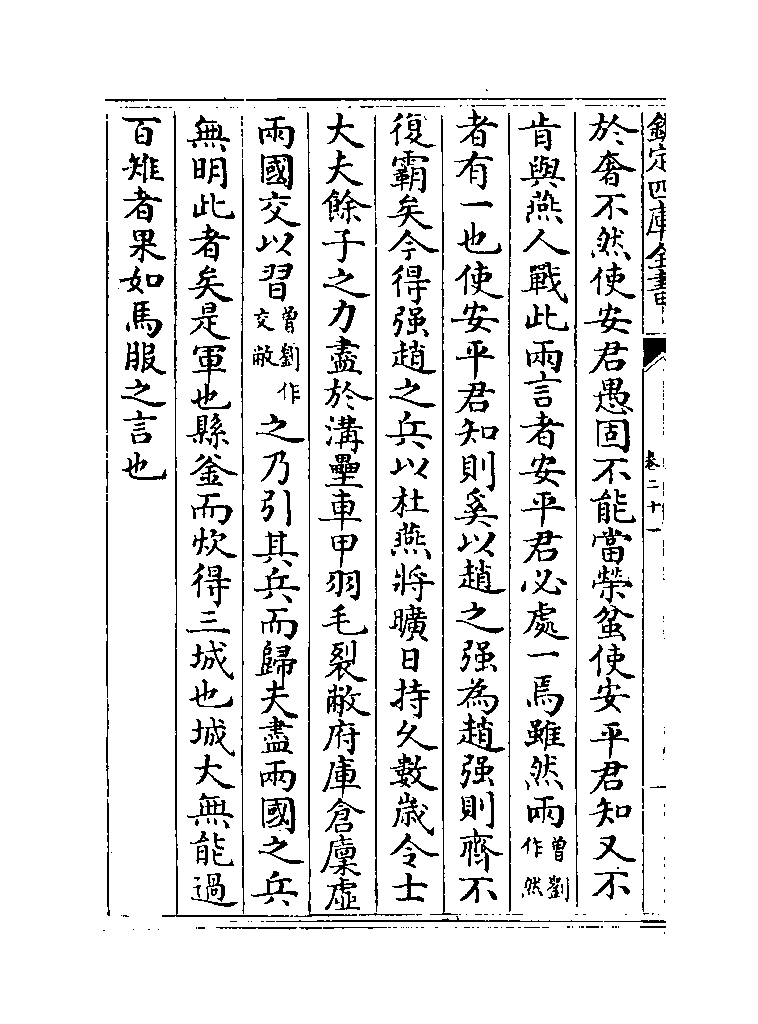 欽定四庫全書
卷二十一
於奢不然使安君愚固不能當榮蚠使安平君知又不
肯與燕人戰此兩言者安平君必處一焉雖然兩曾劉作然
者有一也使安平君知則奚以趙之强為趙强則齊不
復霸矣今得强趙之兵以杜燕將曠日持久數歲令士
大夫餘子之力盡於溝壘車甲羽毛裂敝府庫倉廩虛
兩國交以習曾劉作交敝之乃引其兵而歸夫盡兩國之兵
無明此者矣是軍也縣釜而炊得三城也城大無能過
百雉者果如馬服之言也